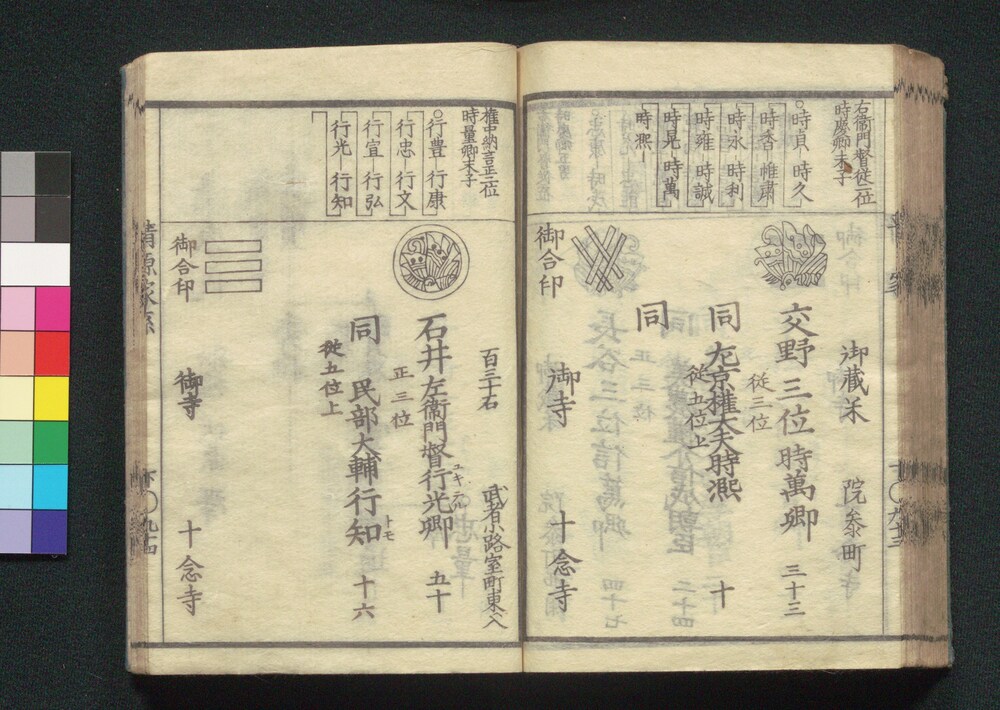 右衞門督従二位
時慶卿末子
時貞 時久
時香 惟肅
時永 時利
時雍 時誠
時晃 時萬
時凞
御蔵米 院参町
交野三位時萬卿 三十三
従三位
同 左京権大夫時凞 十
従五位上
同
御合印 御寺 十念寺
権中納言正二位
時量卿末子
行豊 行康
行忠 行文
行宣 行弘
行光 行知
百三十石 武者小路室町東ヘ入
石井左衞門督行光卿 五十
ユキテル
正三位
同 民部大輔行知 十六
トモ
従五位上
御合印 御寺 十念寺